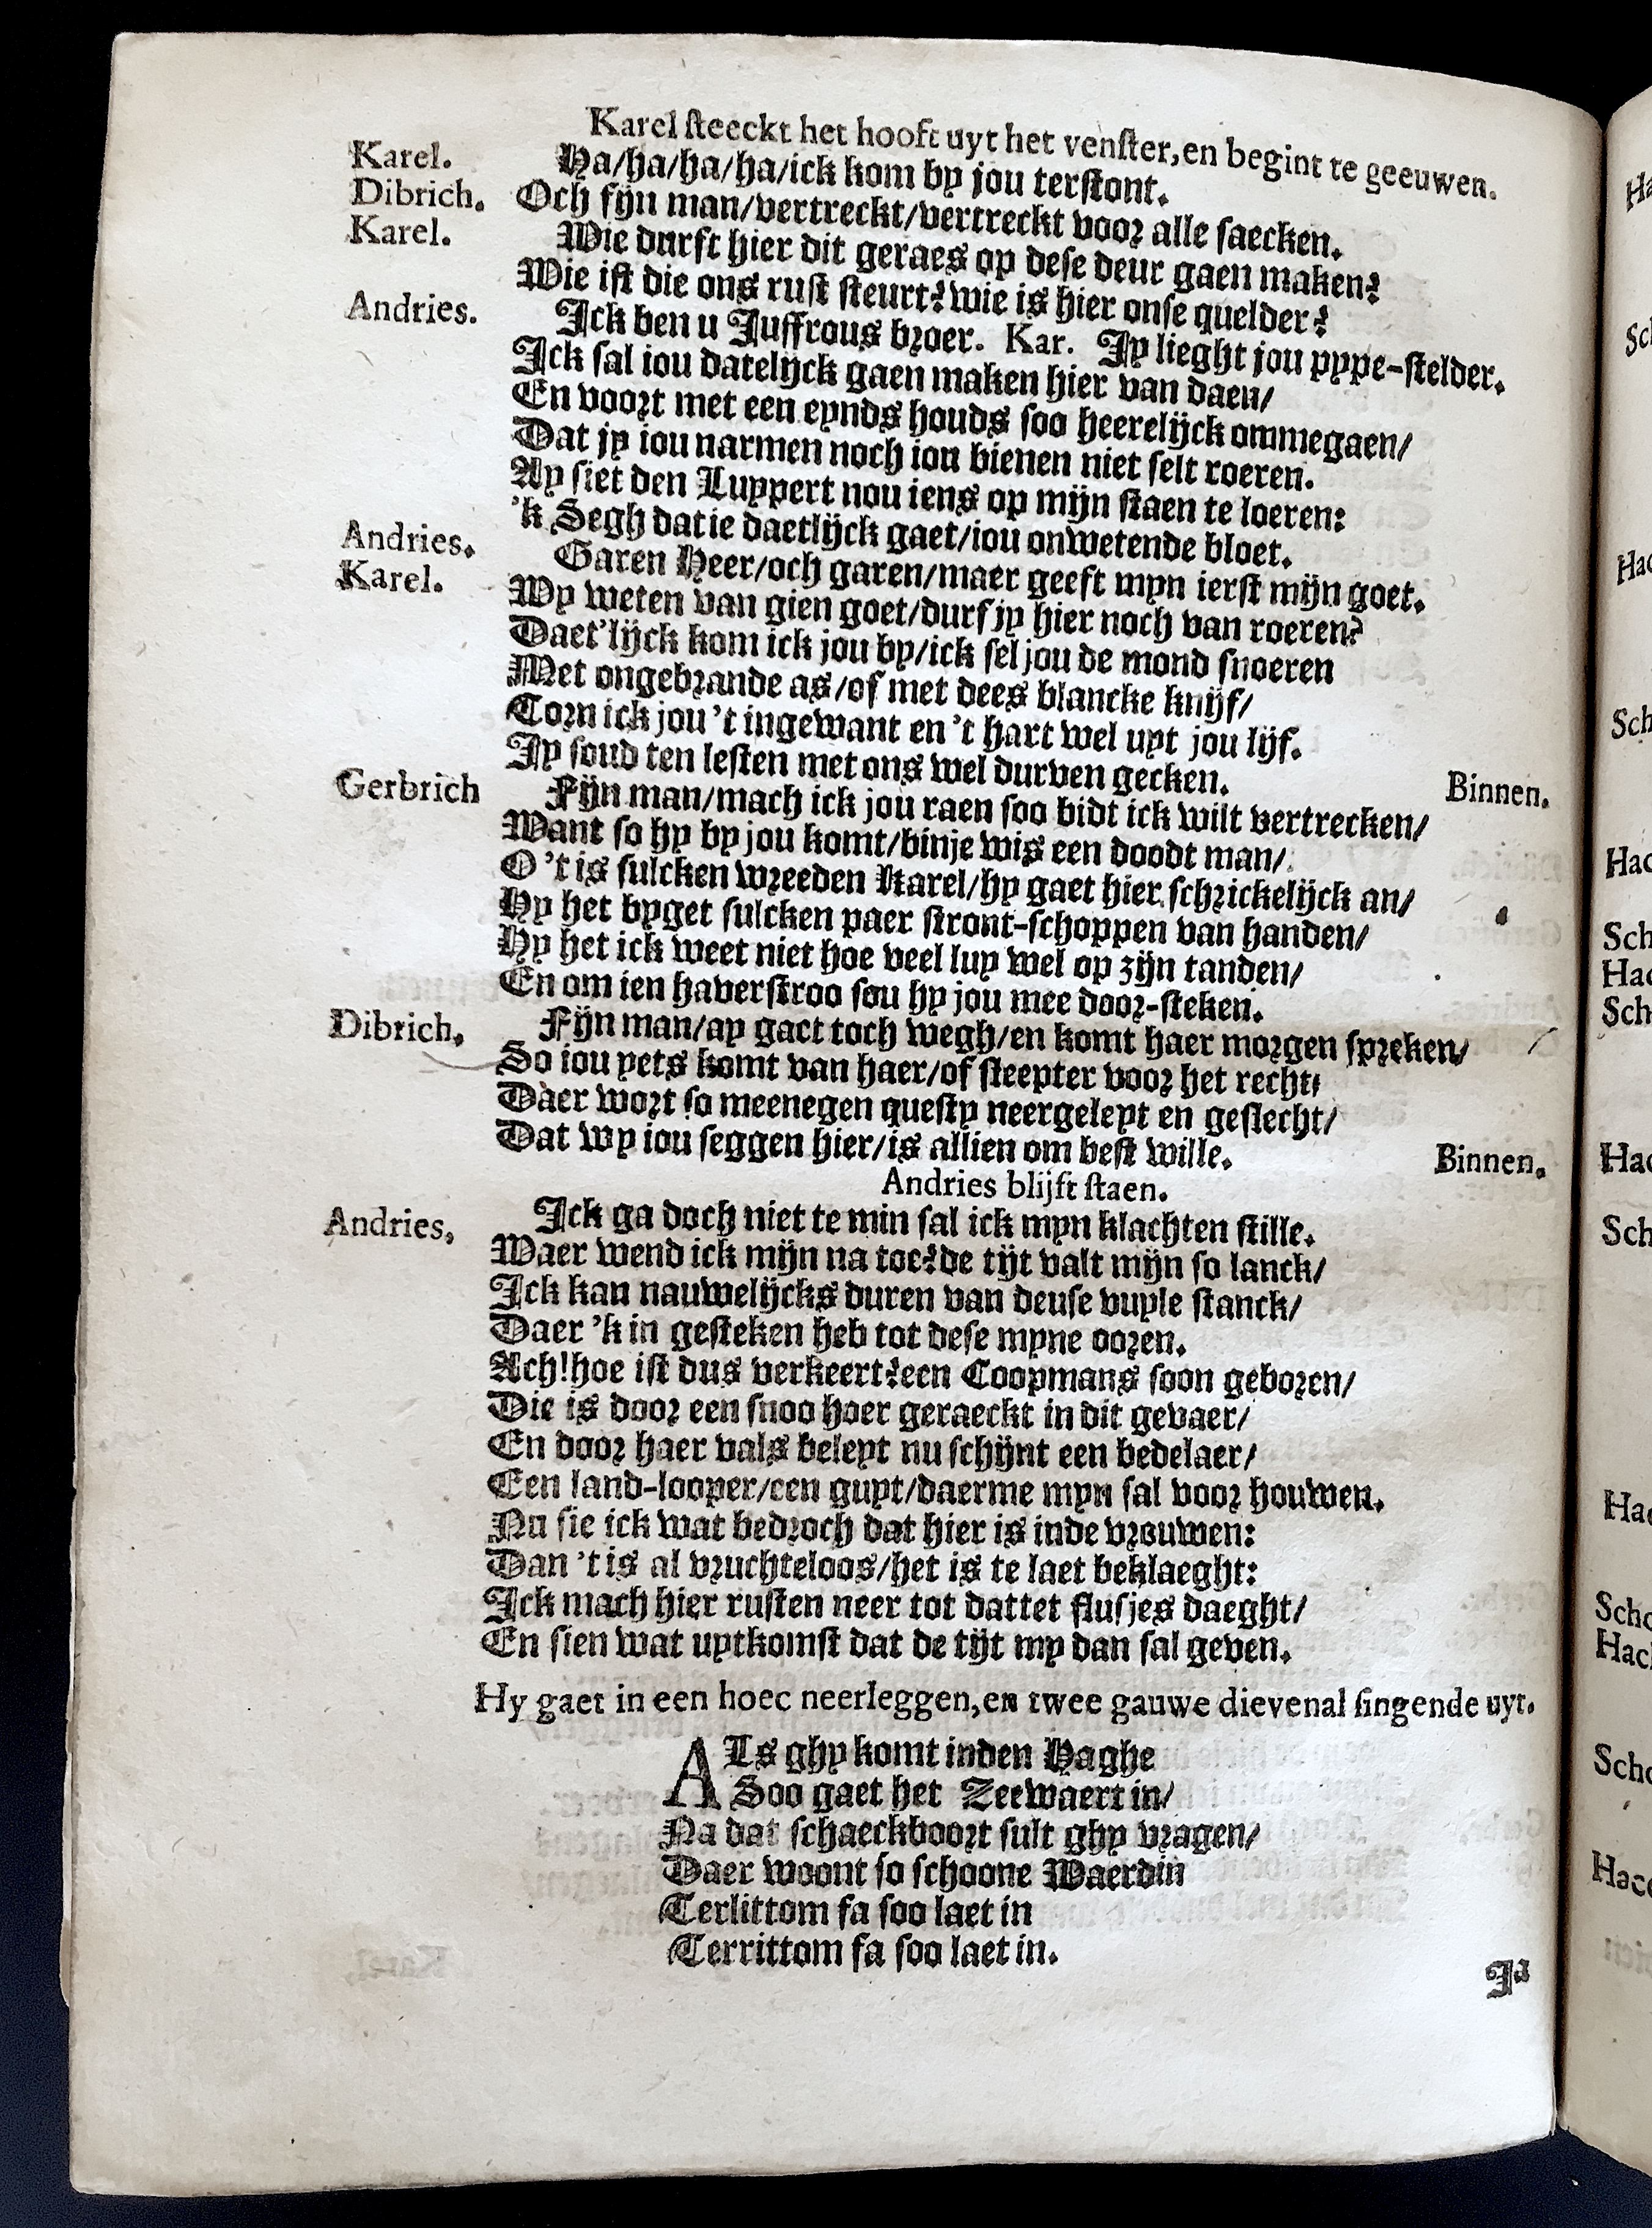 Karel steeckt het hooft uyt het venster, en begint te geeuwen.
Karel. Ha/ha/ha/ha/ick kom by jou terstont.
Dibrich. Och fijn man/vertreckt/vertreckt voor alle saecken.
Karel. Wie durft hier dit geraes op dese deur gaen maken?
Wie ist die ons rust steurt? wie is hier onse quelder?
Andries. Ick ben u Juffrous broer. Kar. Jy lieght jou pype-stelder.
Ick sal iou datelijck gaen maken hier van daen/
En voort met een eynds houds soo heerelijck ommegaen/
Dat jy iou narmen noch iou bienen niet selt roeren.
Ay siet den Luyppert nou iens op mijn staen te loeren:
'k Segh datie daetlijck gaet/iou onwetende bloet.
Andries. Garen Heer/och garen/maer geeft myn ierst mijn goet.
Karel. Wy weten van gien goet/durf jy hier noch van roeren?
Daet'lijck kom ick jou by/ick sel jou de mond snoeren
Met ongebrande as/of met dees blancke knijf/
Torn ick jou 't ingewant en 't hart wel uyt jou lijf.
Jy soud ten lesten met ons wel durven gecken. Binnen.
Gerbrich Fijn man/mach ick jou raen soo bidt ick wilt vertrecken/
Want so hy by jou komt/binje wis een doodt man/
O 't is sulcken wreeden Karel/hy gaet hier schrickelijck an/
Hy het byget sulcken paer stront-schoppen van handen/
Hy het ick weet niet hoe veel luy wel op zijn tanden/
En om ien haverstroo sou hy jou mee door-steken.
Dibrich. Fijn man/ay gaet toch wegh/en komt haer morgen spreken/
So iou yets komt van haer/of steepter voor het recht/
Daer wort so meenegen questy neergeleyt en geslecht/
Dat wy iou seggen hier/is allien om best wille. Binnen.
Andries blijft staen.
Andries. Ick ga doch niet te min sal ick myn klachten stille.
Waer wend ick mijn na toe? de tijt valt mijn so lanck/
Ick kan nauwelijcks duren van deuse vuyle stanck/
Daer 'k in gesteken heb tot dese myne ooren.
Ach! hoe ist dus verkeert? een Coopmans soon geboren/
Die is door een snoo hoer geraeckt in dit gevaer/
En door haer vals beleyt nu schijnt een bedelaer/
Een land-looper/een guyt/daerme myn sal voor houwen.
Nu sie ick wat bedroch dat hier is inde vrouwen:
Dan 't is al vruchteloos/het is te laet beklaeght:
Ick mach hier rusten neer tot dattet flusjes daeght/
En sien wat uytkomst dat de tijt my dan sal geven.
Hy gaet in een hoec neerleggen, en twee gauwe dievenal singende uyt.
ALs ghy komt inden Haghe
Soo gaet het Zeewaert in/
Na dat schaeckboort sult ghy vragen/
Daer woont so schoone Waerdin
Terlittom fa soo laet in
Territtom fa soo laet in.
Ja